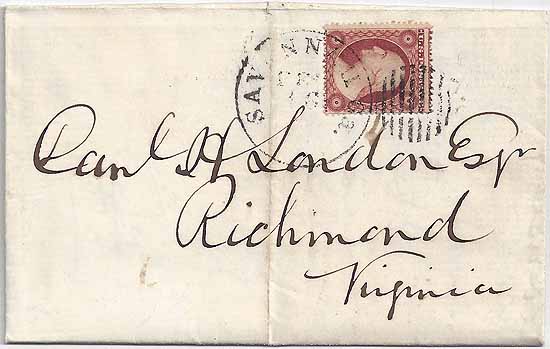 SAVANN
Danl H London Esqr
Richmond
Virginia